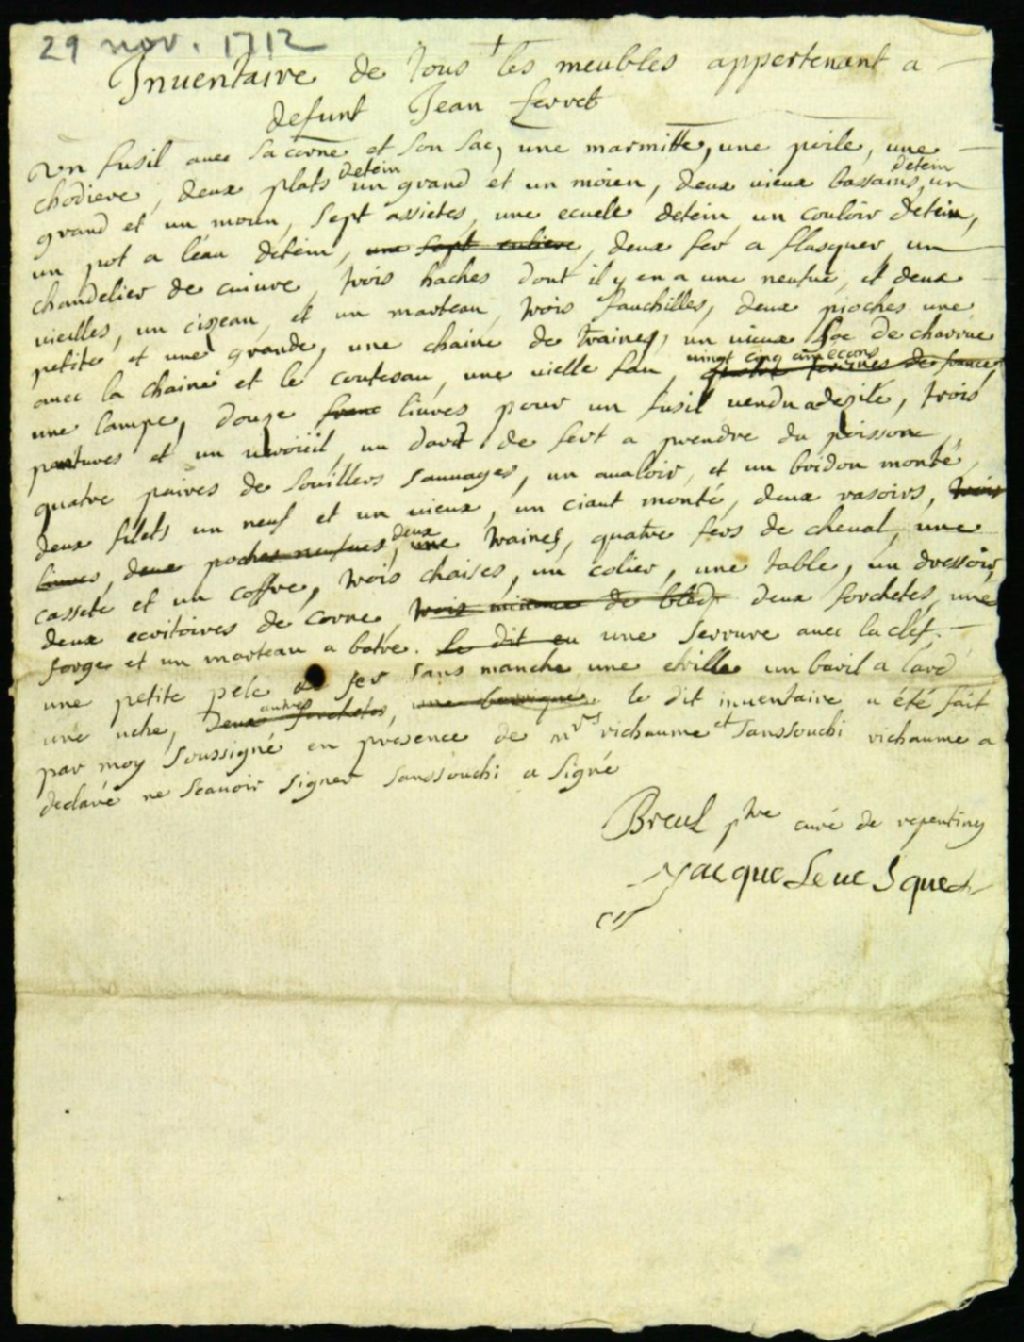 29 nov. 1712
Inuentaire de tous les meubles appertenant a
defunt Jean ferret
Un fusil auec sa corne et son sac, une marmitte, une poile, une
chodiere, deux plats detein un grand et un moien, deux vieux bassains detein, un
grand et un moien, sept assietes, une ecuelle detein un couloir detein,
un pot a l'eau detein, deux fer a flasquer, un
chandelier de cuiure, trois haches dont il y en a une neufue, et deux
vieilles, un ciseau, et un marteau, trois fauchilles, deux pioches une
petite et une grande, une chaine de traines, un vieux soc de charrue
auec la chaine et le couteau, une vielle fau, vingt cinq ameçons
une lampe, douze franc liures pour un fusil vendu trois
pantures et un un dard de fert a prendre du poisson,
quatre paires de souillers sauuages, un aualoir, et un bridon monté,
deux filets un neuf et un vieux, un ciaut monté, deux rasoirs, trois
liures, deux poches neufues, deux une traines, quatre fers de cheval, une
cassete et un coffre, trois chaises, un colier, une table, un dressoir,
deux ecritoires de corne, trois minots de bled, deux forchetes, une
forge et un marteau a batre. le dit en une serrure auec la clef.
une petite pele de fer sans manche une etrille un baril a lard
une uche, deux autres forchetes, une barrique, le dit inuentaire a été fait
par moy soussigné en presence de mrs richaume et sanssouchi richaume a
declaré ne scauoir signer sanssouchi a signé
Breul ptre curé de repentiny
Jacque Leuesque